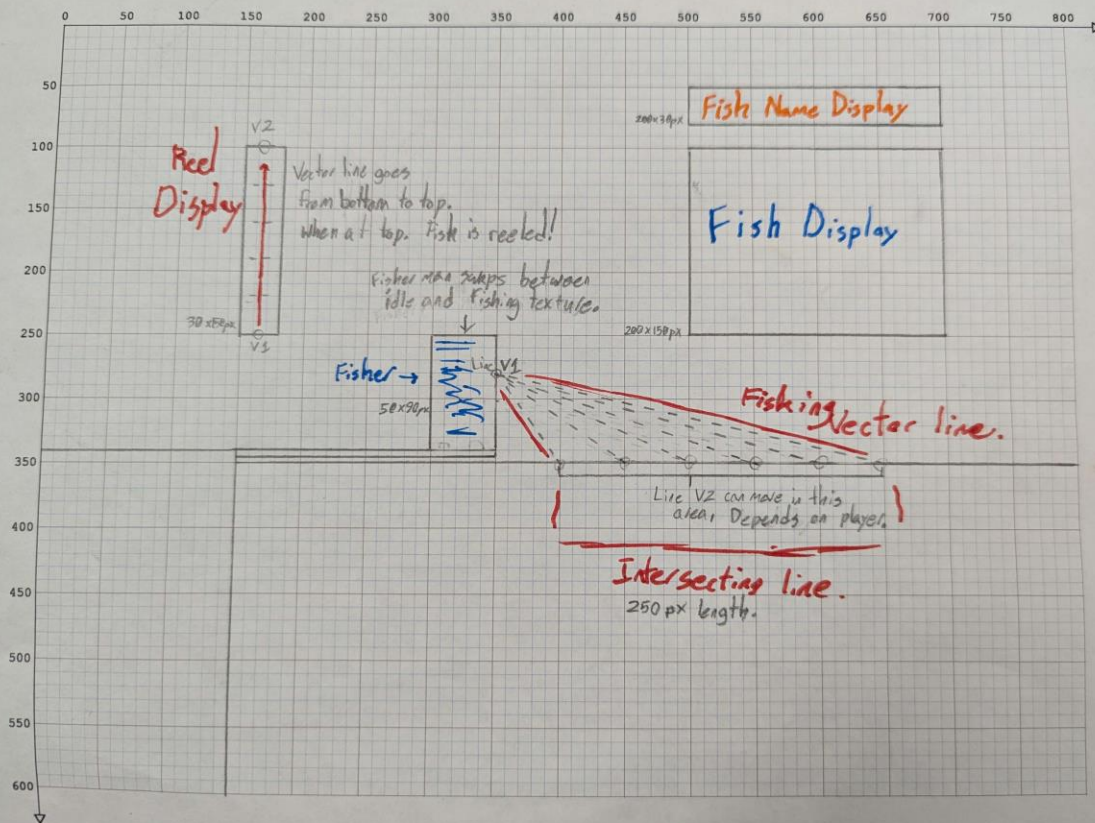 0 50 100 150 200 250 300 350 400 450 500 550 600 650 700 750 800
50
100
150
200
250
300
350
400
450
500
550
600
Fish Name Display
200x30px
V2
Reel
Display
Vector line goes
from bottom to top.
When at top. Fish is reeled!
Fish Display
Fisher man swaps between
idle and Fishing texture.
30x150px
V1
200x150px
Line V1
Fisher →
50x90px
Fishing
Vector line.
Line V2 can move in this
area, Depends on player.
Intersecting line.
250 px length.